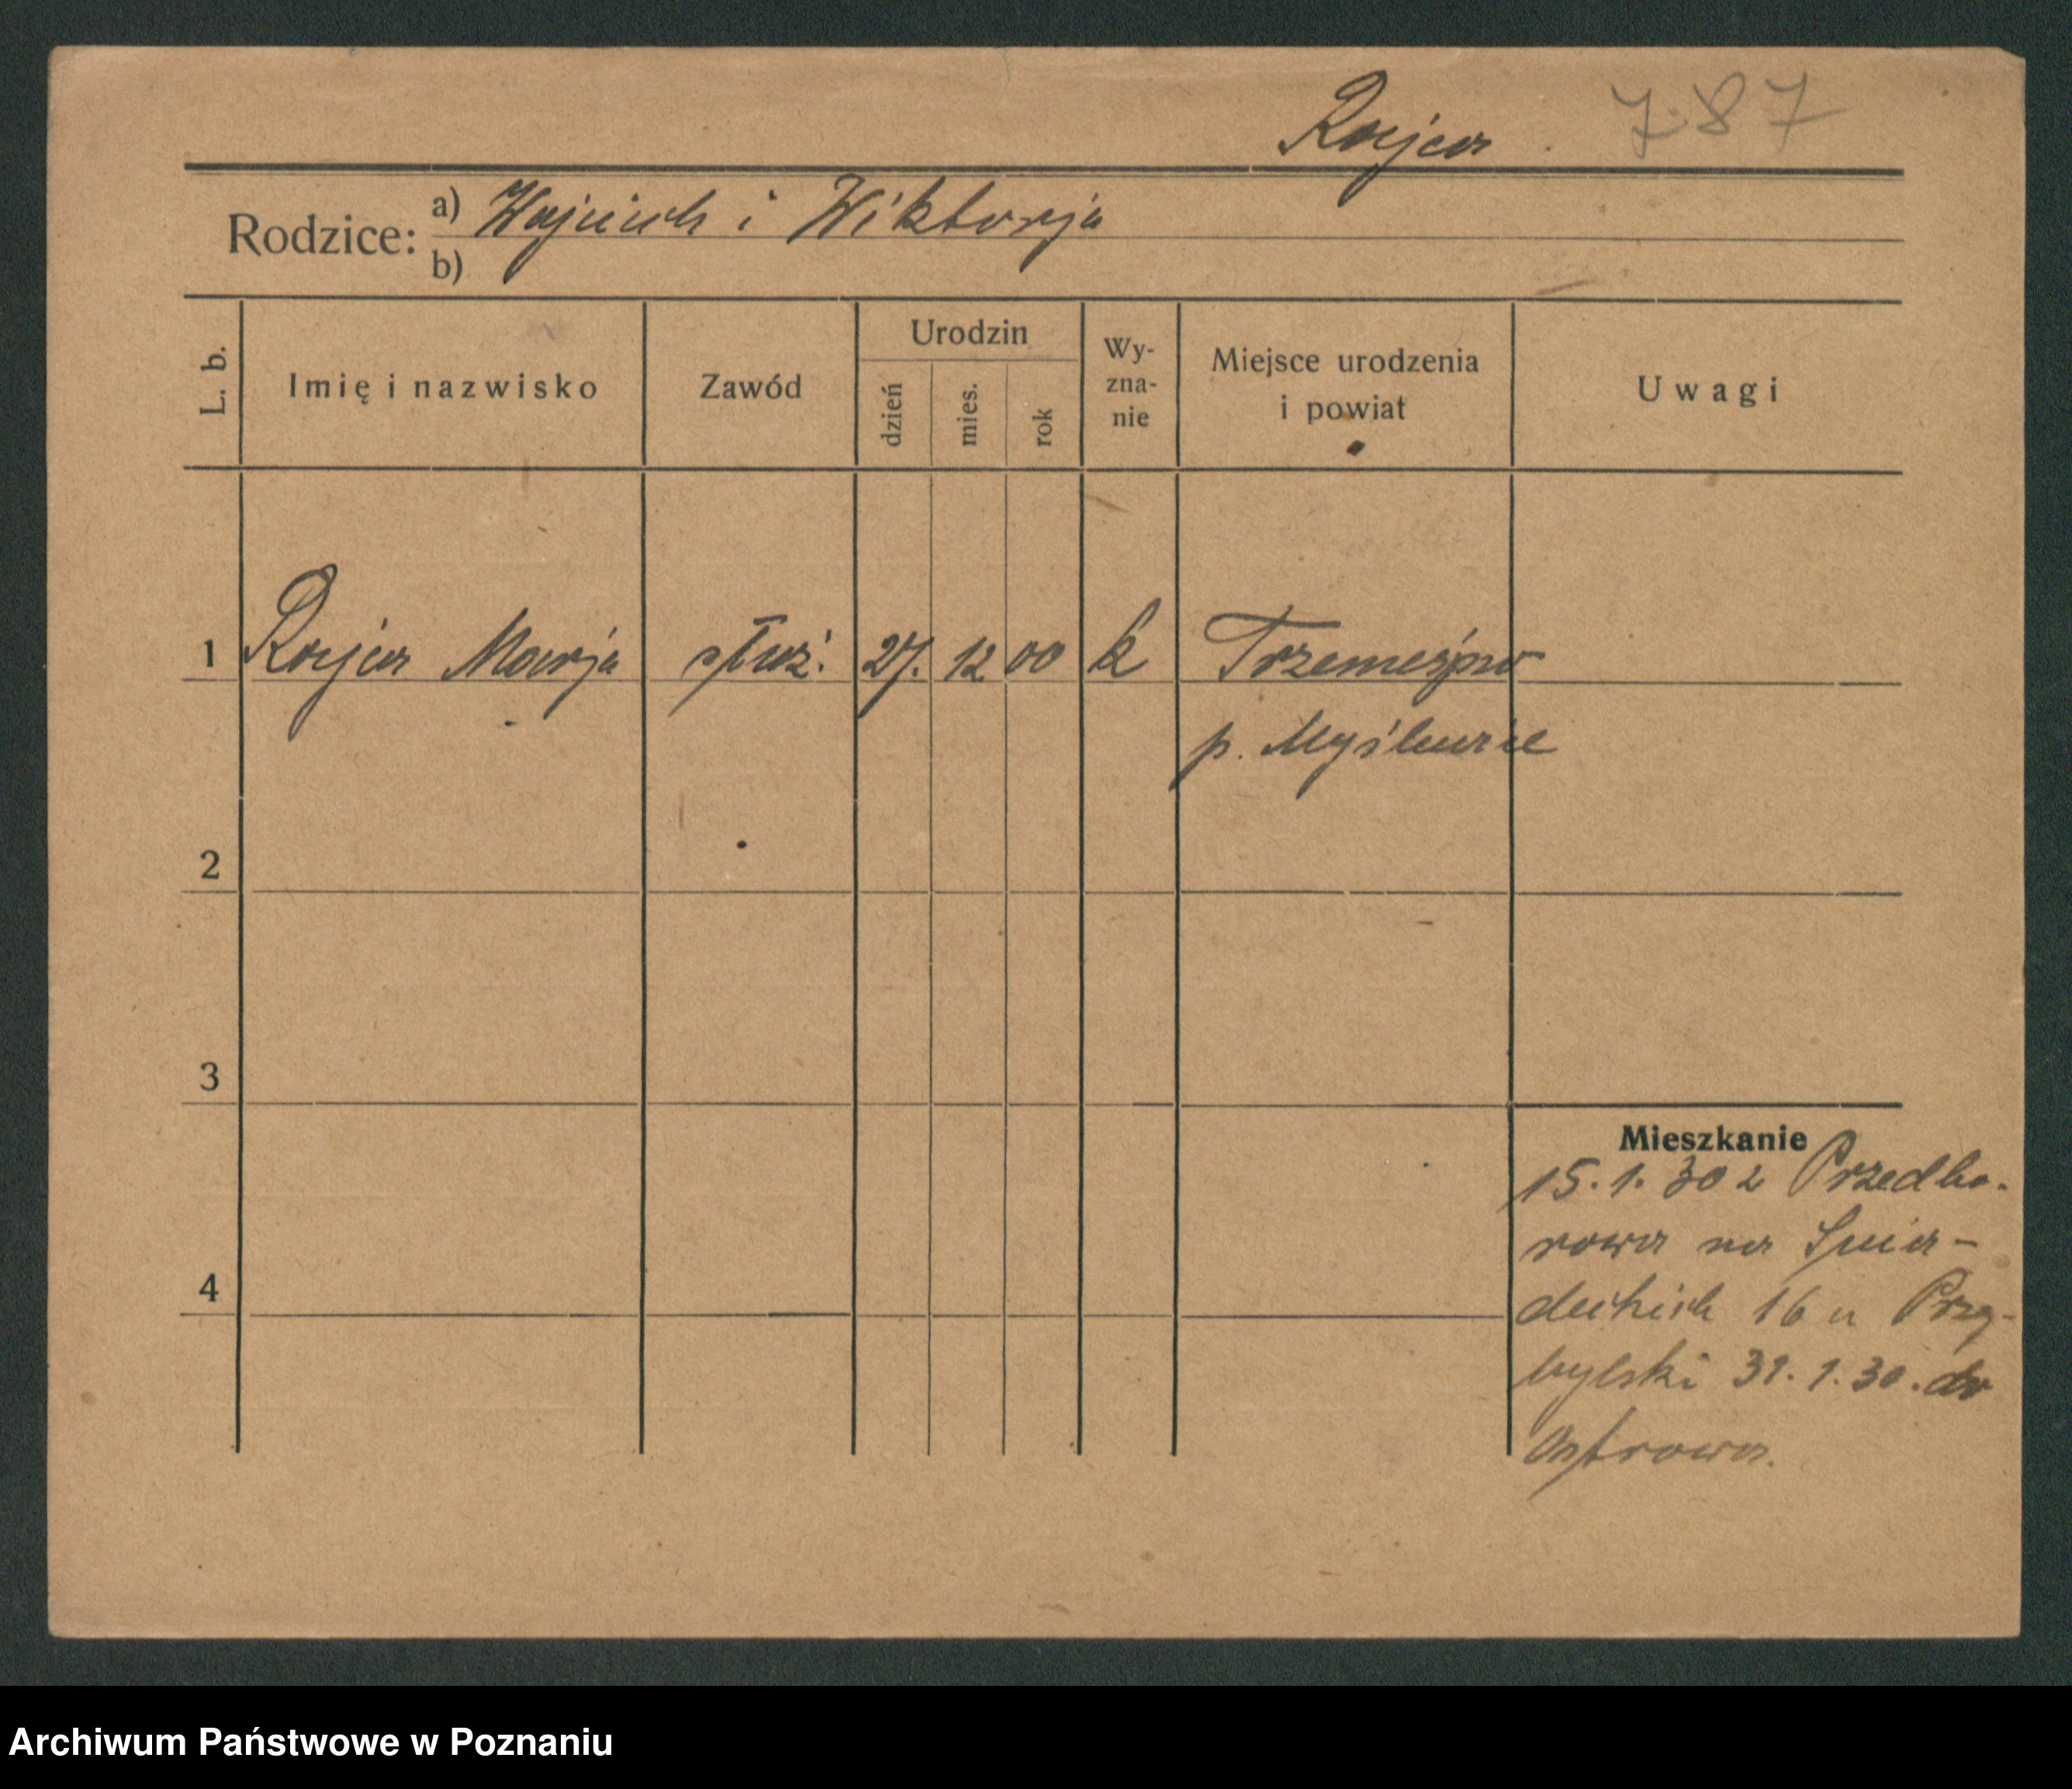 Rajca 787
Rodzice: a) Wojciech i Wiktorja
b)
L. b. Imię i nazwisko Zawód Urodzin dzień mies. rok Wy-zna-nie Miejsce urodzenia i powiat Uwagi
1 Rajca Marja służ. 27. 12 00 k Trzemeśno
p. Myślenice
2
3
Mieszkanie
15.1.30 z Przedbo-
rowa na Śnia-
4
deckich 16 u Przy-
bylski 31.1.30. do
Ostrowa.
Archiwum Państwowe w Poznaniu